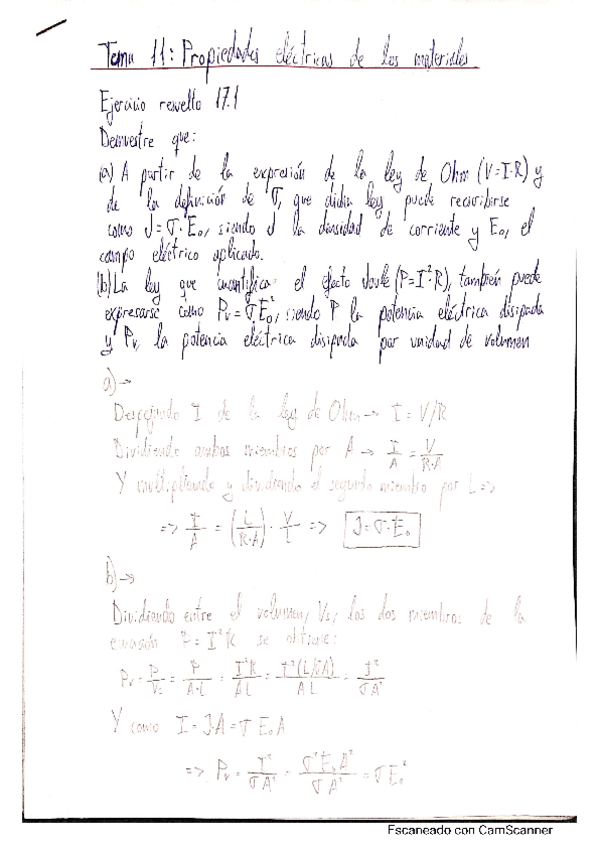 Tema 11: Propiedades eléctricas de los materiales
Ejercicio resuelto 17.1
Demuestre que:
(a) A partir de la expresión de la ley de Ohm (V=I·R) y
de la definición de σ, que dicha ley puede reescribirse
como J=σ·E₀, siendo J la densidad de corriente y E₀, el
campo eléctrico aplicado.
(b) La ley que cuantifica el efecto Joule (P=I²·R), también puede
expresarse como Pv=σE₀², siendo P la potencia eléctrica disipada
y Pv, la potencia eléctrica disipada por unidad de volumen
a)→
Despejando I de la ley de Ohm → I = V/R
Dividiendo ambos miembros por A → I/A = V/(R·A)
Y multiplicando y dividiendo el segundo miembro por L =>
=> I/A = (L/(R·A)) · V/L => J=σ·E₀
b)→
Dividiendo entre el volumen, Vs, los dos miembros de la
ecuación P=I²R se obtiene:
Pv = P/Vs = P/(A·L) = I²R/(AL) = I²(L/σA)/(AL) = I²/(σA²)
Y como I=J·A=σE₀A
=> Pv = I²/(σA²) = σ²E₀²A²/(σA²) = σE₀²
Escaneado con CamScanner